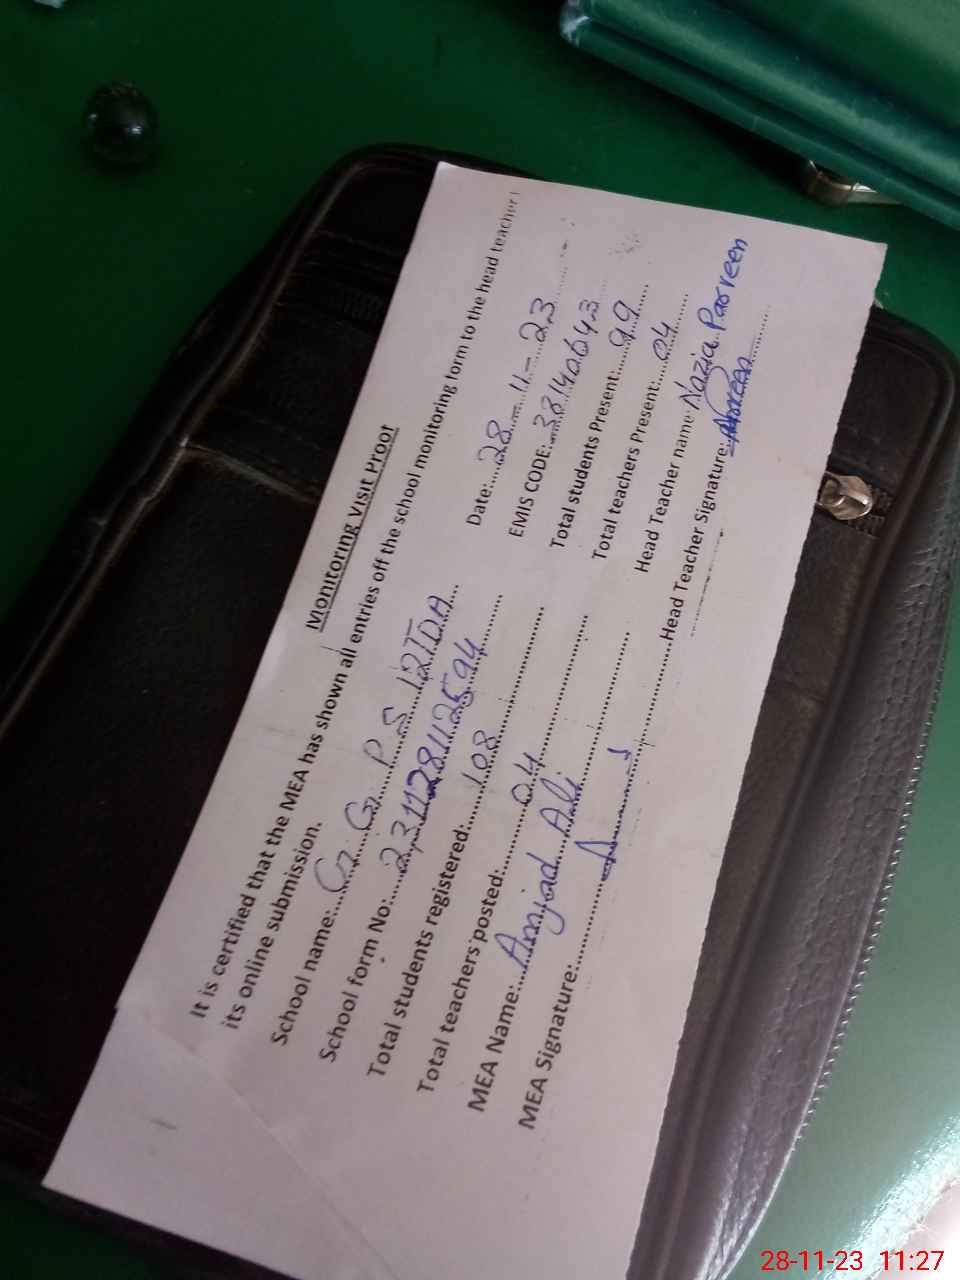 Monitoring Visit Proof
It is certified that the MEA has shown all entries off the school monitoring form to the head teacher
its online submission.
School name:.....G. G. P. S 12TDA.... Date:....28-11-23
School form No:....231128112594 EMIS CODE:...38140643
Total students registered:....108 Total students Present:....99
Total teachers posted:....04 Total teachers Present:....04
MEA Name:....Amjad Ali Head Teacher name: Nazia Parveen
MEA Signature:.... Head Teacher Signature:
28-11-23 11:27